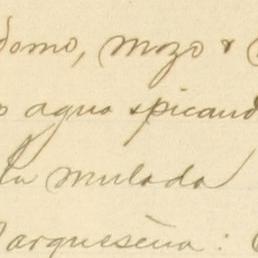 domo, mozo &
agua & picand
la mulada
arqueseña: